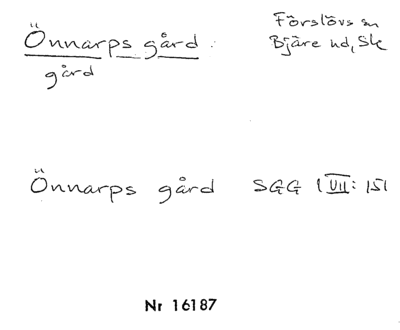 Önnarps gård.
gård
Förslövs sn
Bjäre hd, Sk
Önnarps gård SGG I VII: 151
Nr 16187